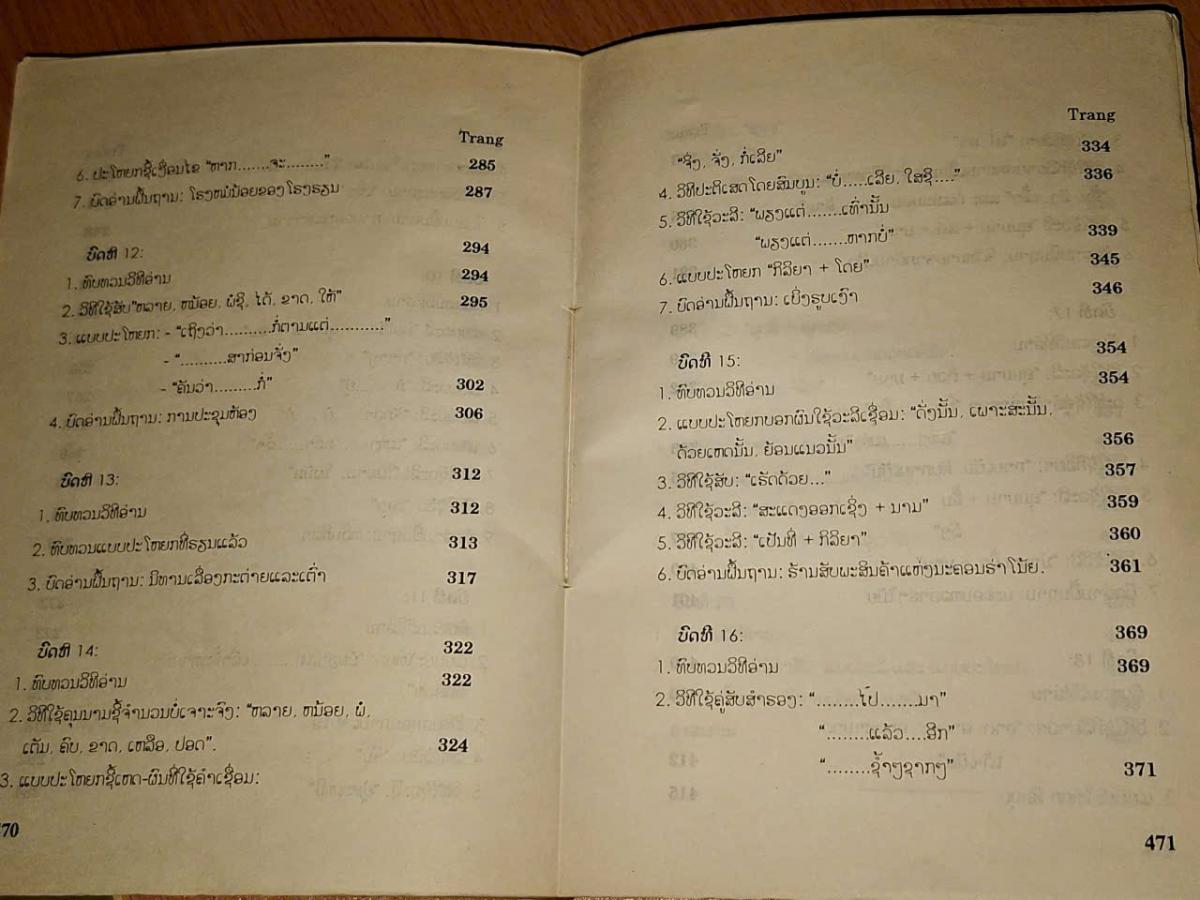 Trang
6. ປະໂຫຍກຊີ້ເງື່ອນໄຂ "ຫາກ.......ຈະ........" 285
7. ບົດອ່ານພື້ນຖານ: ໂຮງໝໍນ້ອຍຂອງໂຮງຮຽນ 287
ບົດທີ 12: 294
1. ທົບທວນວິທີອ່ານ 294
2. ວິທີໃຊ້ສັບ "ຫລາຍ, ຫນ້ອຍ, ພໍຊິ, ໄດ້, ຂາດ, ໃຫ້" 295
3. ແບບປະໂຫຍກ: - "ເຖິງວ່າ..........ກໍ່ຕາມແຕ່..........."
- "..........ສາກ່ອນຈັ່ງ"
- "ຄັນວ່າ.........ກໍ່" 302
4. ບົດອ່ານພື້ນຖານ: ການປະຊຸມຫ້ອງ 306
ບົດທີ 13: 312
1. ທົບທວນວິທີອ່ານ 312
2. ທົບທວນແບບປະໂຫຍກທີ່ຮຽນແລ້ວ 313
3. ບົດອ່ານພື້ນຖານ: ນິທານເລື່ອງກະຕ່າຍແລະເຕົ່າ 317
ບົດທີ 14: 322
1. ທົບທວນວິທີອ່ານ 322
2. ວິທີໃຊ້ຄຸນນາມຊີ້ຈຳນວນບໍ່ເຈາະຈົງ: "ຫລາຍ, ຫນ້ອຍ, ພໍ,
ເຕັມ, ຄົບ, ຂາດ, ເຫລືອ, ປອດ". 324
3. ແບບປະໂຫຍກຊີ້ເຫດ-ຜົນທີ່ໃຊ້ຄຳເຊື່ອມ:
70
Trang
"ຈຶ່ງ, ຈັ່ງ, ກໍ່ເລີຍ" 334
4. ວິທີປະຕິເສດໂດຍສົມບູນ: "ບໍ່.....ເລີຍ, ໃສຊິ....." 336
5. ວິທີໃຊ້ວະລີ: "ພຽງແຕ່.......ເທົ່ານັ້ນ
"ພຽງແຕ່.......ຫາກບໍ່" 339
6. ແບບປະໂຫຍກ "ກິລິຍາ + ໂດຍ" 345
7. ບົດອ່ານພື້ນຖານ: ເບິ່ງຮູບເງົາ 346
ບົດທີ 15: 354
1. ທົບທວນວິທີອ່ານ 354
2. ແບບປະໂຫຍກບອກຜົນໃຊ້ວະລີເຊື່ອມ: "ດັ່ງນັ້ນ, ເພາະສະນັ້ນ,
ດ້ວຍເຫດນັ້ນ, ຍ້ອນແນວນັ້ນ" 356
3. ວິທີໃຊ້ສັບ: "ເຮັດດ້ວຍ..." 357
4. ວິທີໃຊ້ວະລີ: "ສະແດງອອກເຊິ່ງ + ນາມ" 359
5. ວິທີໃຊ້ວະລີ: "ເປັນທີ່ + ກິລິຍາ" 360
6. ບົດອ່ານພື້ນຖານ: ຮ້ານສັບພະສິນຄ້າແຫ່ງນະຄອນຮ່າໂນ້ຍ. 361
ບົດທີ 16: 369
1. ທົບທວນວິທີອ່ານ 369
2. ວິທີໃຊ້ຄູ່ສັບສຳຮອງ: "........ໄປ.......ມາ"
".........ແລ້ວ....ອີກ"
"........ຊ້ຳໆຊາກໆ" 371
471